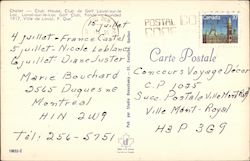 Chalet — Club House, Club de Golf Laval-sur-le-
Lac, Laval-sur-le-Lac Golf Club, fondé en founded
1917, Ville de Laval, P. Que.
15 juillet
4 juillet - France Castel
5 juillet - Nicole Leblanc
6 juillet Diane Juster
Marie Bouchard
2565 Duquesne
Montreal
H1N 2W9
Tél: 256-5751
POSTAL
CODE
Canada
Carte Postale
Concours Voyage Décor
C.P. 1025
Succ. Postale Ville Mont Royal
Ville Mont-Royal
H3P 3G9